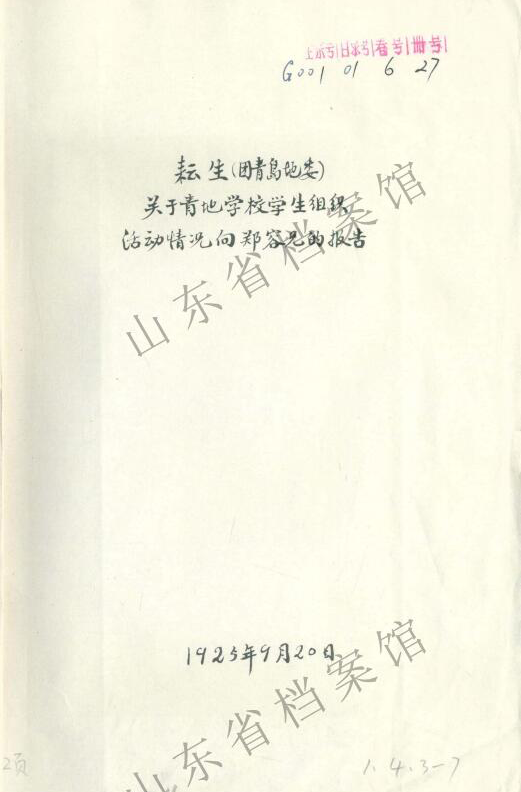 卷号 册号
G001 01 6 27
耘生(团青岛地委)
关于青地学校学生组织
活动情况向郑容兄的报告
山东省档案馆
1925年9月20日
山东省档案馆
2页
1.4.3-7